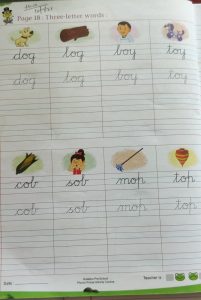 Page 18 : Three-letter words :
dog log boy toy
dog log boy toy
cob sob mop top
cob sob mop top
Date
Teacher's